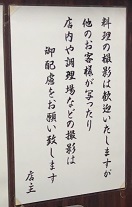 料理の撮影は歓迎いたしますが
他のお客様が写ったり
店内や調理場などの撮影は
御配慮をお願い致します
店主